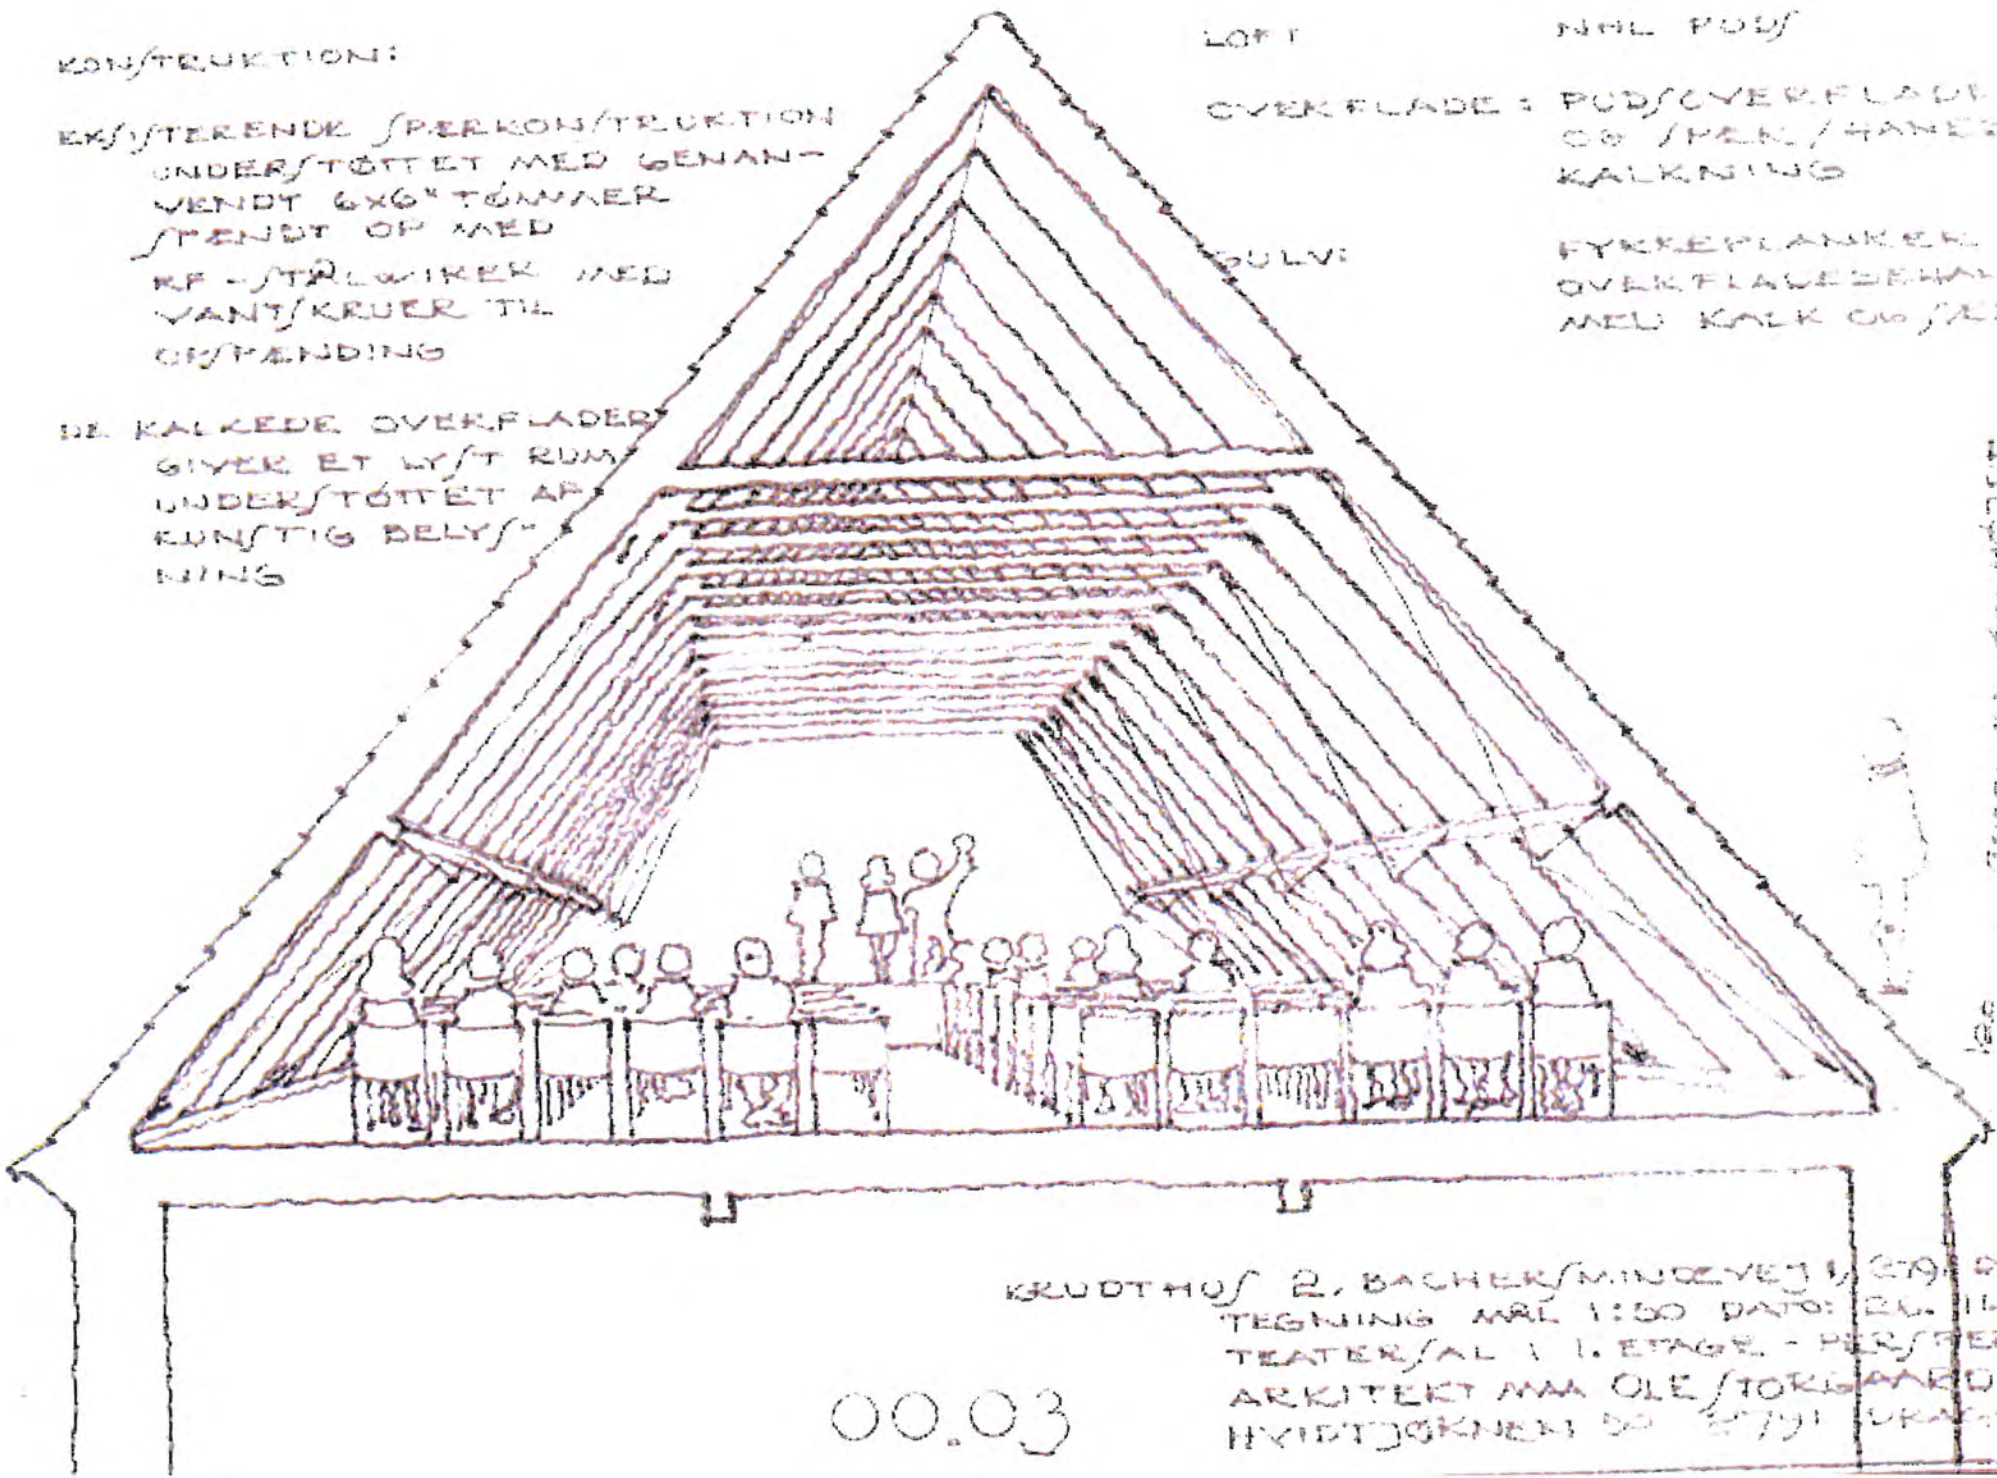 KONSTRUKTION:
EKSISTERENDE SPÆRKONSTRUKTION
UNDERSTØTTET MED GENAN-
VENDT 6x6" TØMMER
SPÆNDT OP MED
RF-STÅLWIRER MED
VANTSKRUER TIL
OPSPÆNDING
DE KALKEDE OVERFLADER
GIVER ET LYST RUM
UNDERSTØTTET AF
KUNSTIG BELYS-
NING
LOFT NHL PUDS
OVERFLADE: PUDSOVERFLADE
OG SPÆR/HANEB
KALKNING
GULV: FYRREPLANKER
OVERFLADEBEHAN
MED KALK OG SÆ
180
KRUDTHUS 2, BACHERSMINDEVEJ
TEGNING MÅL 1:50 DATO:
TEATERSAL I 1. ETAGE - PERSPE
ARKITEKT MAA OLE STORGAARD
HVIDTJØRNEN 50 2791 DRAG
00.03